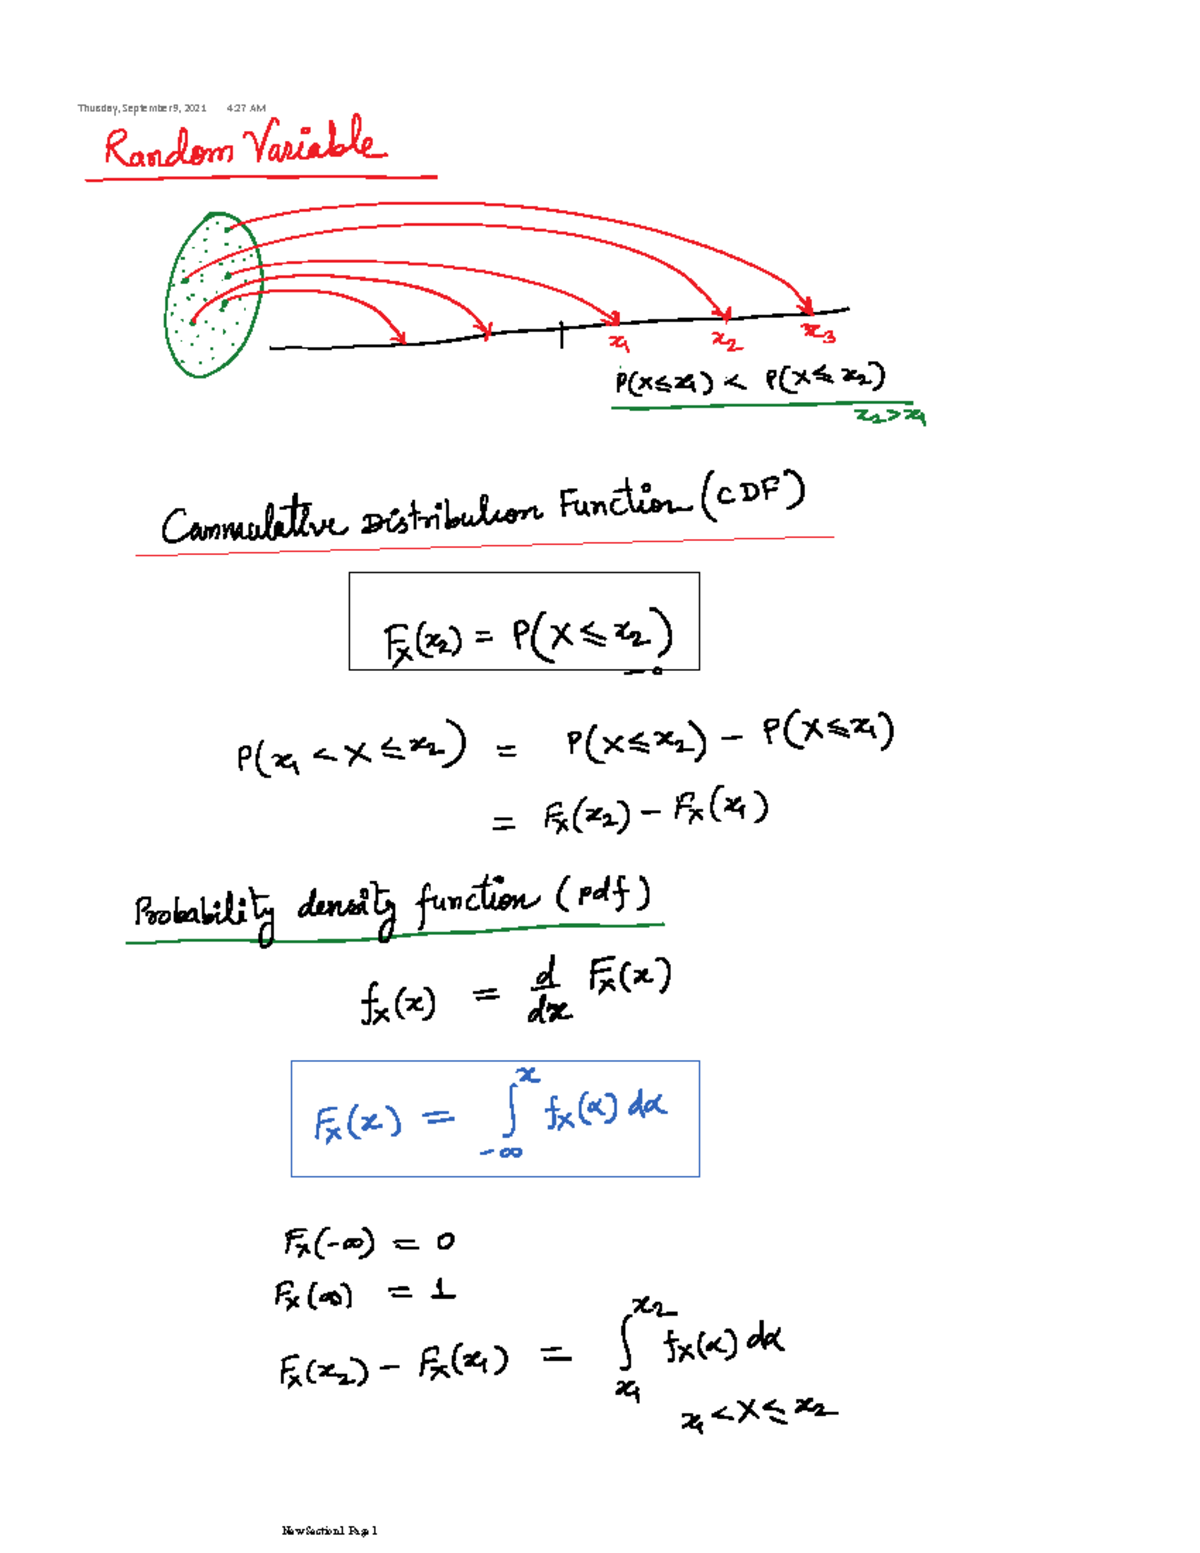 Thursday, September 9, 2021 4:27 AM
Random Variable
x₁ x₂ x₃
P(X≤x₁) < P(X≤x₂)
x₂>x₁
Cammulative Distribution Function (CDF)
F_X(x₂) = P(X≤x₂)
P(x₁ < X ≤ x₂) = P(X≤x₂) − P(X≤x₁)
= F_X(x₂) − F_X(x₁)
Probability density function (pdf)
f_X(x) = d/dx F_X(x)
F_X(x) = ∫_{-∞}^{x} f_X(α) dα
F_X(-∞) = 0
F_X(∞) = 1
F_X(x₂) − F_X(x₁) = ∫_{x₁}^{x₂} f_X(α) dα
x₁ < X ≤ x₂
New Section1 Page 1